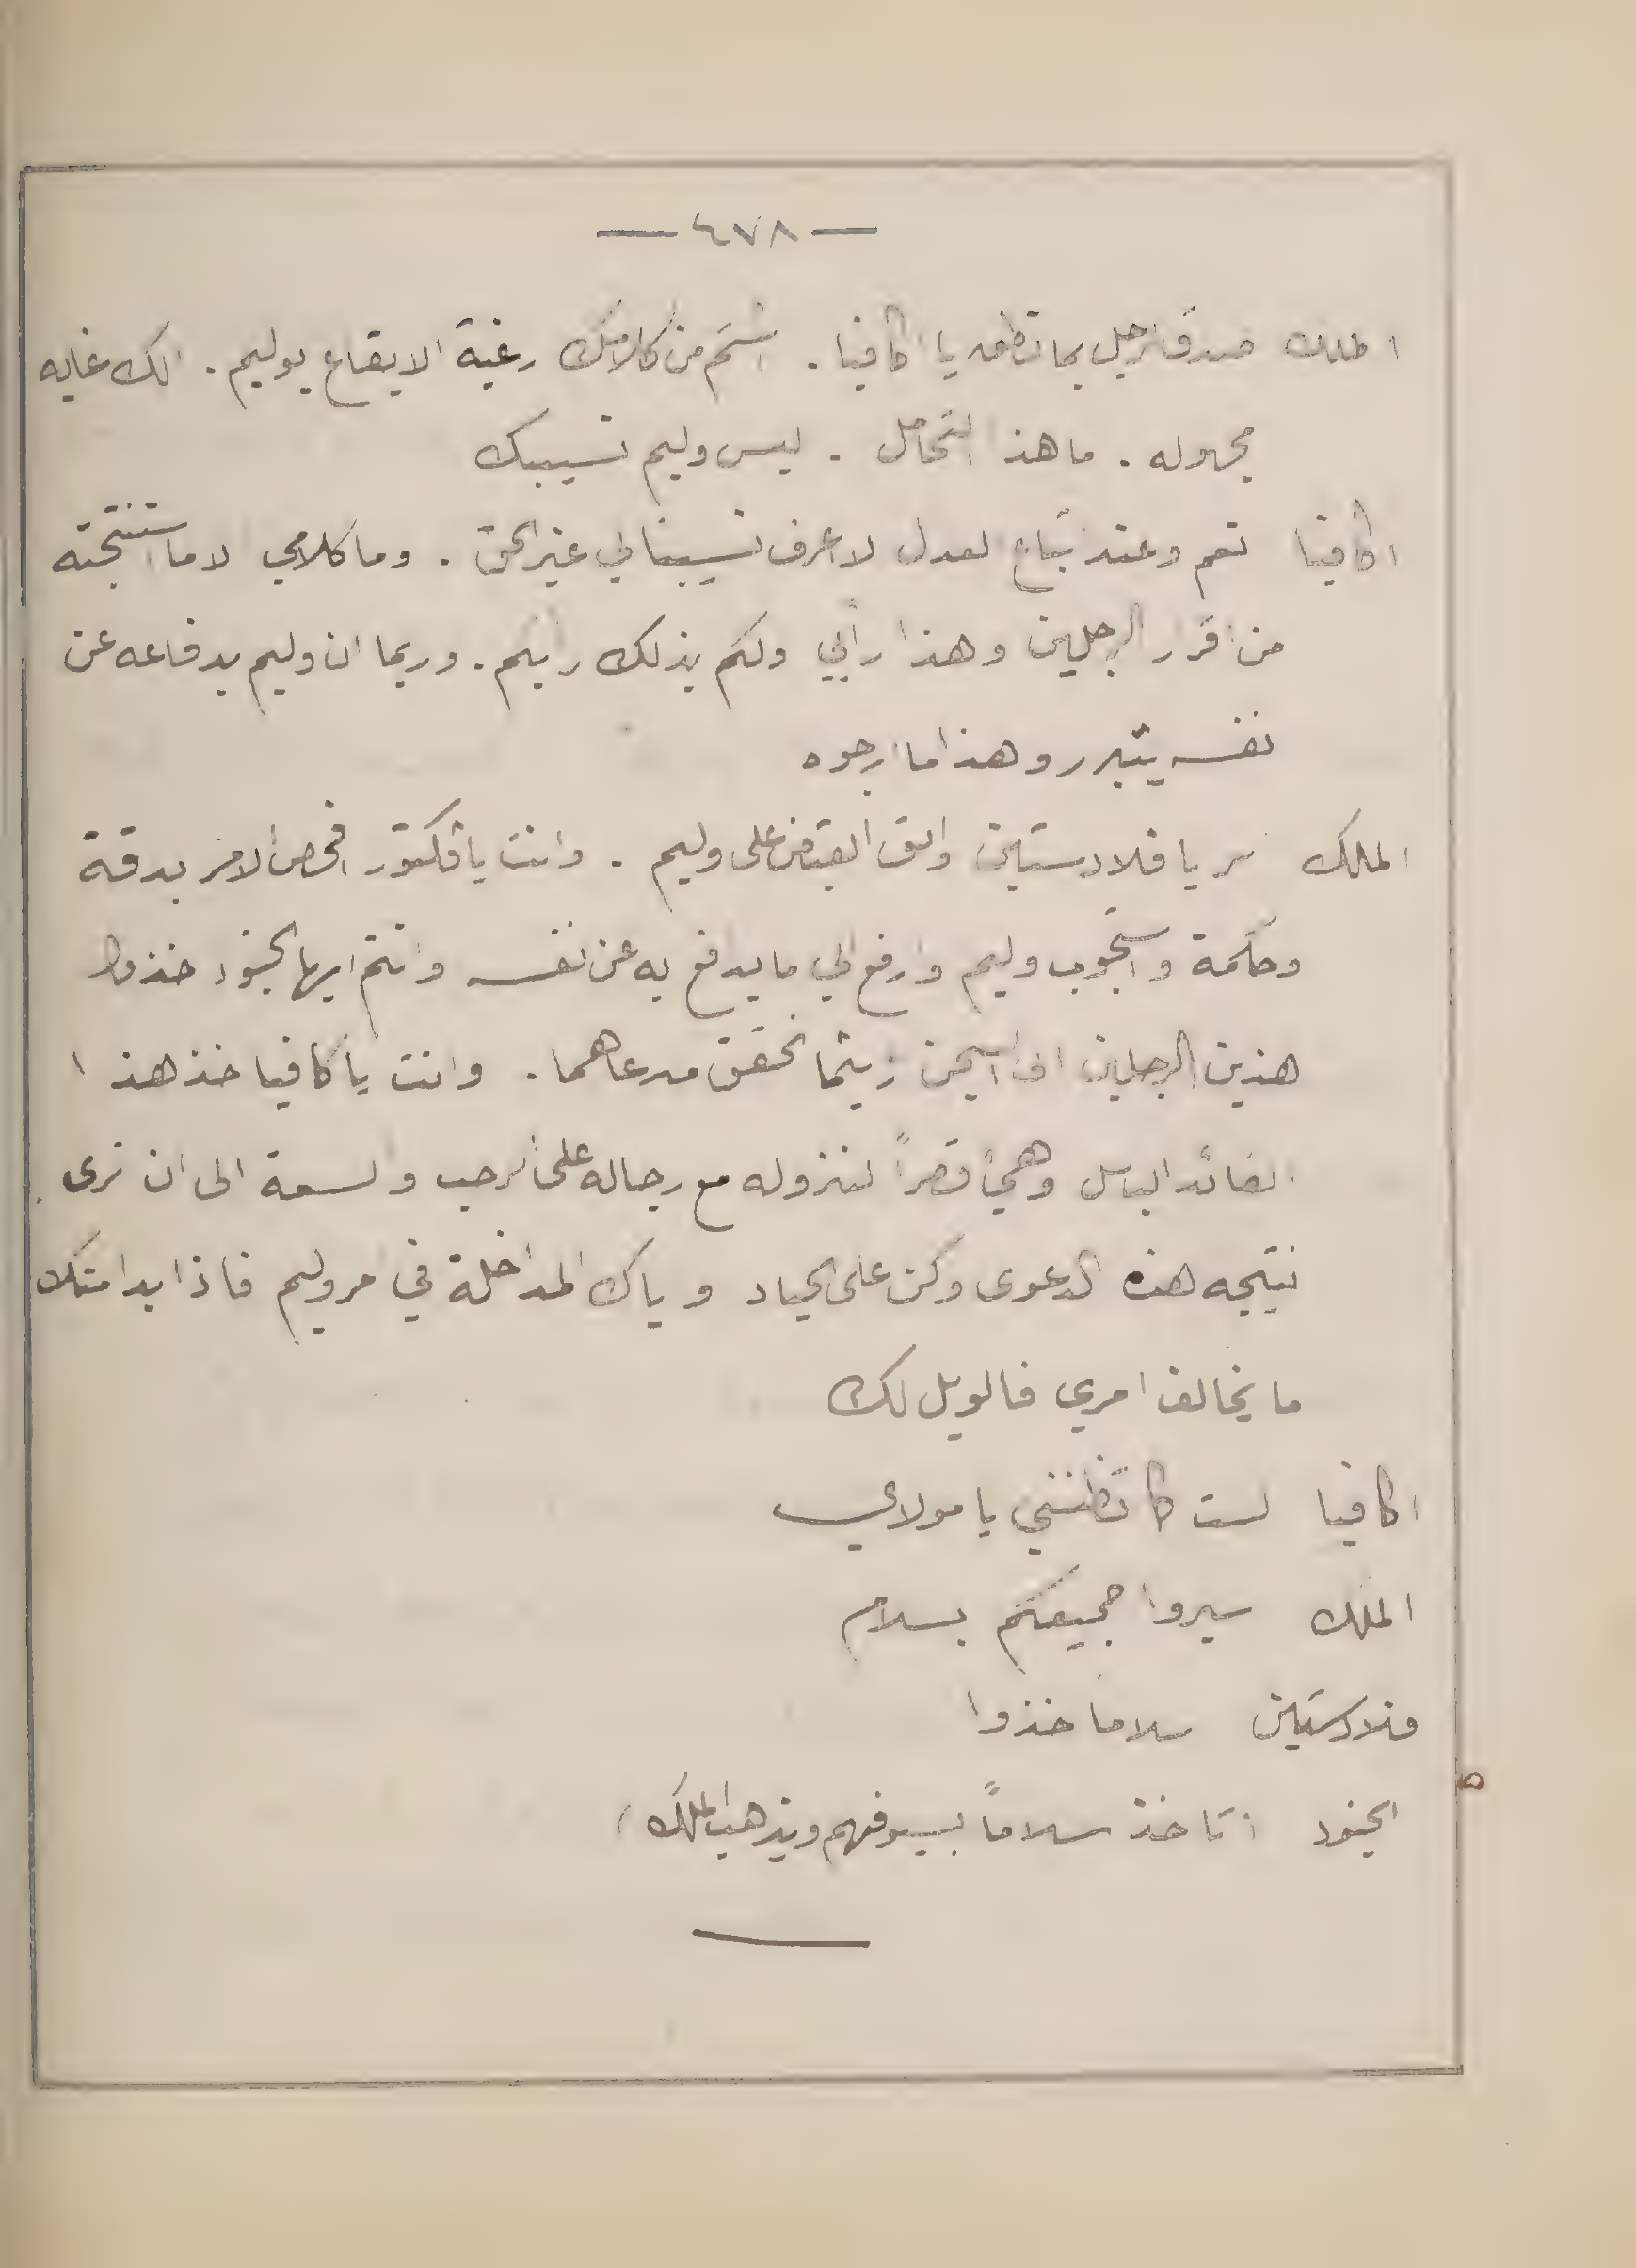 — ٤٧٨ —
الملك صدق الرجل بما نطق يا اكافيا . اشتم من كلامك رغبة الايقاع بوليم . الك غايه
مجهوله . ما هذا التحامل . ليس وليم نسيبك
اكافيا نعم وعند اتباع العدل لا اعرف نسيبا لي غير الحق . وما كلامي الا ما استنتجته
من اقرار الرجلين وهذا رأيي ولكم بذلك رايكم . وربما ان وليم بدفاعه عن
نفسه يتبرر وهذا ما ارجوه
الملك سر يا فلادستين والق القبض على وليم . وانت يا فكتور افحص الامر بدقة
وحكمة واستجوب وليم وارفع الي ما يدفع به عن نفسه وانتم ايها الجنود خذوا
هذين الرجلين الى السجن ريثما نحقق مدعاهما . وانت يا اكافيا خذ هذا
القائد الباسل وهيئ قصراً لنزوله مع رجاله على الرحب والسعة الى ان نرى
نتيجه هذه الدعوى وكن على الحياد واياك المداخلة في امر وليم فاذا بدا منك
ما يخالف امري فالويل لك
اكافيا لست كما تظنني يا مولاي
الملك سيروا جميعكم بسلام
فلادستين سلاما خذوا
الجنود (تاخذ سلاماً بسيوفهم ويذهب الملك)